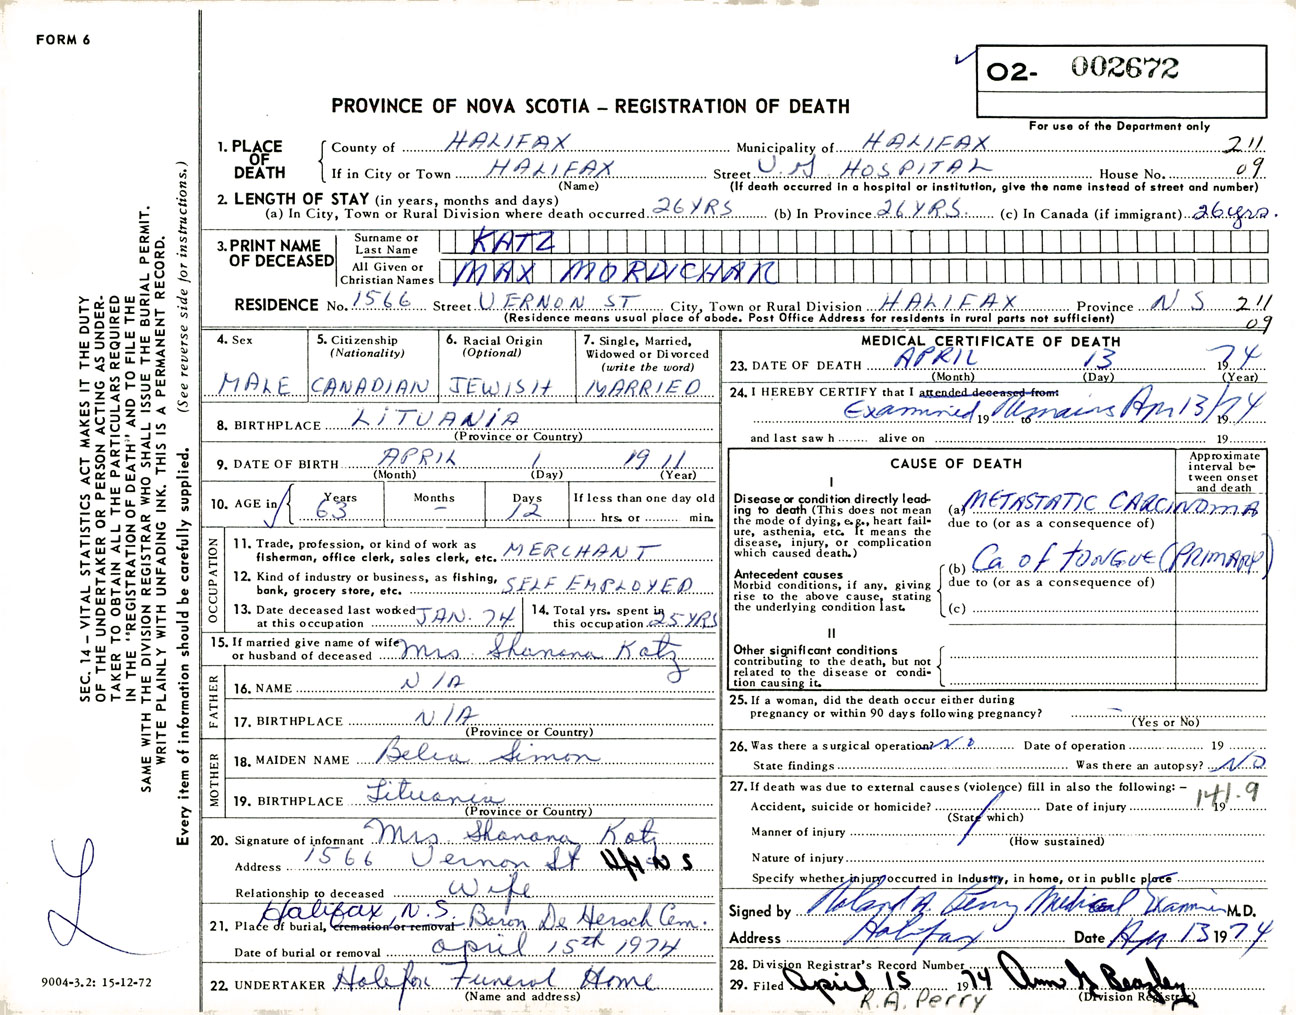 FORM 6
O2- 002672
PROVINCE OF NOVA SCOTIA – REGISTRATION OF DEATH
For use of the Department only
1. PLACE OF DEATH
County of HALIFAX Municipality of HALIFAX 211
If in City or Town HALIFAX Street V.G HOSPITAL House No. 09
(Name) (If death occurred in a hospital or institution, give the name instead of street and number)
2. LENGTH OF STAY (in years, months and days)
(a) In City, Town or Rural Division where death occurred 26 YRS (b) In Province 26 YRS. (c) In Canada (if immigrant) 26 yrs.
3. PRINT NAME OF DECEASED
Surname or Last Name KATZ
All Given or Christian Names MAX MORDICHAR
RESIDENCE No. 1566 Street VERNON ST City, Town or Rural Division HALIFAX Province N S 211
(Residence means usual place of abode. Post Office Address for residents in rural parts not sufficient) 09
4. Sex
MALE
5. Citizenship
(Nationality)
CANADIAN
6. Racial Origin
(Optional)
JEWISH
7. Single, Married,
Widowed or Divorced
(write the word)
MARRIED
8. BIRTHPLACE LITUANIA
(Province or Country)
9. DATE OF BIRTH APRIL 1 1911
(Month) (Day) (Year)
10. AGE in
Years Months Days If less than one day old
63 – 12 hrs. or min.
OCCUPATION
11. Trade, profession, or kind of work as
fisherman, office clerk, sales clerk, etc. MERCHANT
12. Kind of industry or business, as fishing,
bank, grocery store, etc. SELF EMPLOYED
13. Date deceased last worked
at this occupation JAN. 74
14. Total yrs. spent in
this occupation 25 YRS
15. If married give name of wife
or husband of deceased Mrs Shanana Katz
FATHER
16. NAME N/A
17. BIRTHPLACE N/A
(Province or Country)
MOTHER
18. MAIDEN NAME Belia Simon
19. BIRTHPLACE Lituania
(Province or Country)
20. Signature of informant Mrs Shanana Katz
Address 1566 Vernon St Hfx N S
Relationship to deceased Wife
Halifax, N.S.
21. Place of burial, cremation or removal Baron De Hersch Cem.
Date of burial or removal April 15th 1974
22. UNDERTAKER Halifax Funeral Home
(Name and address)
MEDICAL CERTIFICATE OF DEATH
23. DATE OF DEATH APRIL 13 1974
(Month) (Day) (Year)
24. I HEREBY CERTIFY that I attended deceased from:
Examined 19 Remains to Apr 13/74 19
and last saw h alive on 19
CAUSE OF DEATH
Approximate
interval be-
tween onset
and death
I
Disease or condition directly lead-
ing to death (This does not mean
the mode of dying, e.g., heart fail-
ure, asthenia, etc. It means the
disease, injury, or complication
which caused death.)
(a) METASTATIC CARCINOMA
due to (or as a consequence of)
Antecedent causes
Morbid conditions, if any, giving
rise to the above cause, stating
the underlying condition last.
(b) Ca of TONGUE (PRIMARY)
due to (or as a consequence of)
(c)
II
Other significant conditions
contributing to the death, but not
related to the disease or condi-
tion causing it.
25. If a woman, did the death occur either during
pregnancy or within 90 days following pregnancy? –
(Yes or No)
26. Was there a surgical operation? No Date of operation 19
State findings Was there an autopsy? NO
27. If death was due to external causes (violence) fill in also the following: –
141.9
Accident, suicide or homicide? Date of injury 19
(State which)
Manner of injury
(How sustained)
Nature of injury
Specify whether injury occurred in Industry, in home, or in public place
Signed by Roland A. Perry Medical Examiner M.D.
Address Halifax Date Apr 13 1974
28. Division Registrar's Record Number
29. Filed April 15 1974 Ann G Beazley
(Division Registrar)
R.A. Perry
SEC. 14 – VITAL STATISTICS ACT MAKES IT THE DUTY
OF THE UNDERTAKER OR PERSON ACTING AS UNDER-
TAKER TO OBTAIN ALL THE PARTICULARS REQUIRED
IN THE "REGISTRATION OF DEATH" AND TO FILE THE
SAME WITH THE DIVISION REGISTRAR WHO SHALL ISSUE THE BURIAL PERMIT.
WRITE PLAINLY WITH UNFADING INK. THIS IS A PERMANENT RECORD.
Every item of information should be carefully supplied. (See reverse side for instructions.)
9004-3.2: 15-12-72